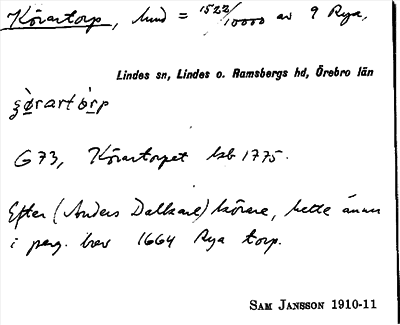 Körartorp, lund = 1522/10000 av 9 Rya,
Lindes sn, Lindes o. Ramsbergs hd, Örebro län
G73, Körartorpet hb 1775.
Efter (Anders Dalkarl) körare, hette ännu
i perg. brev 1664 Rya torp.
SAM JANSSON 1910-11